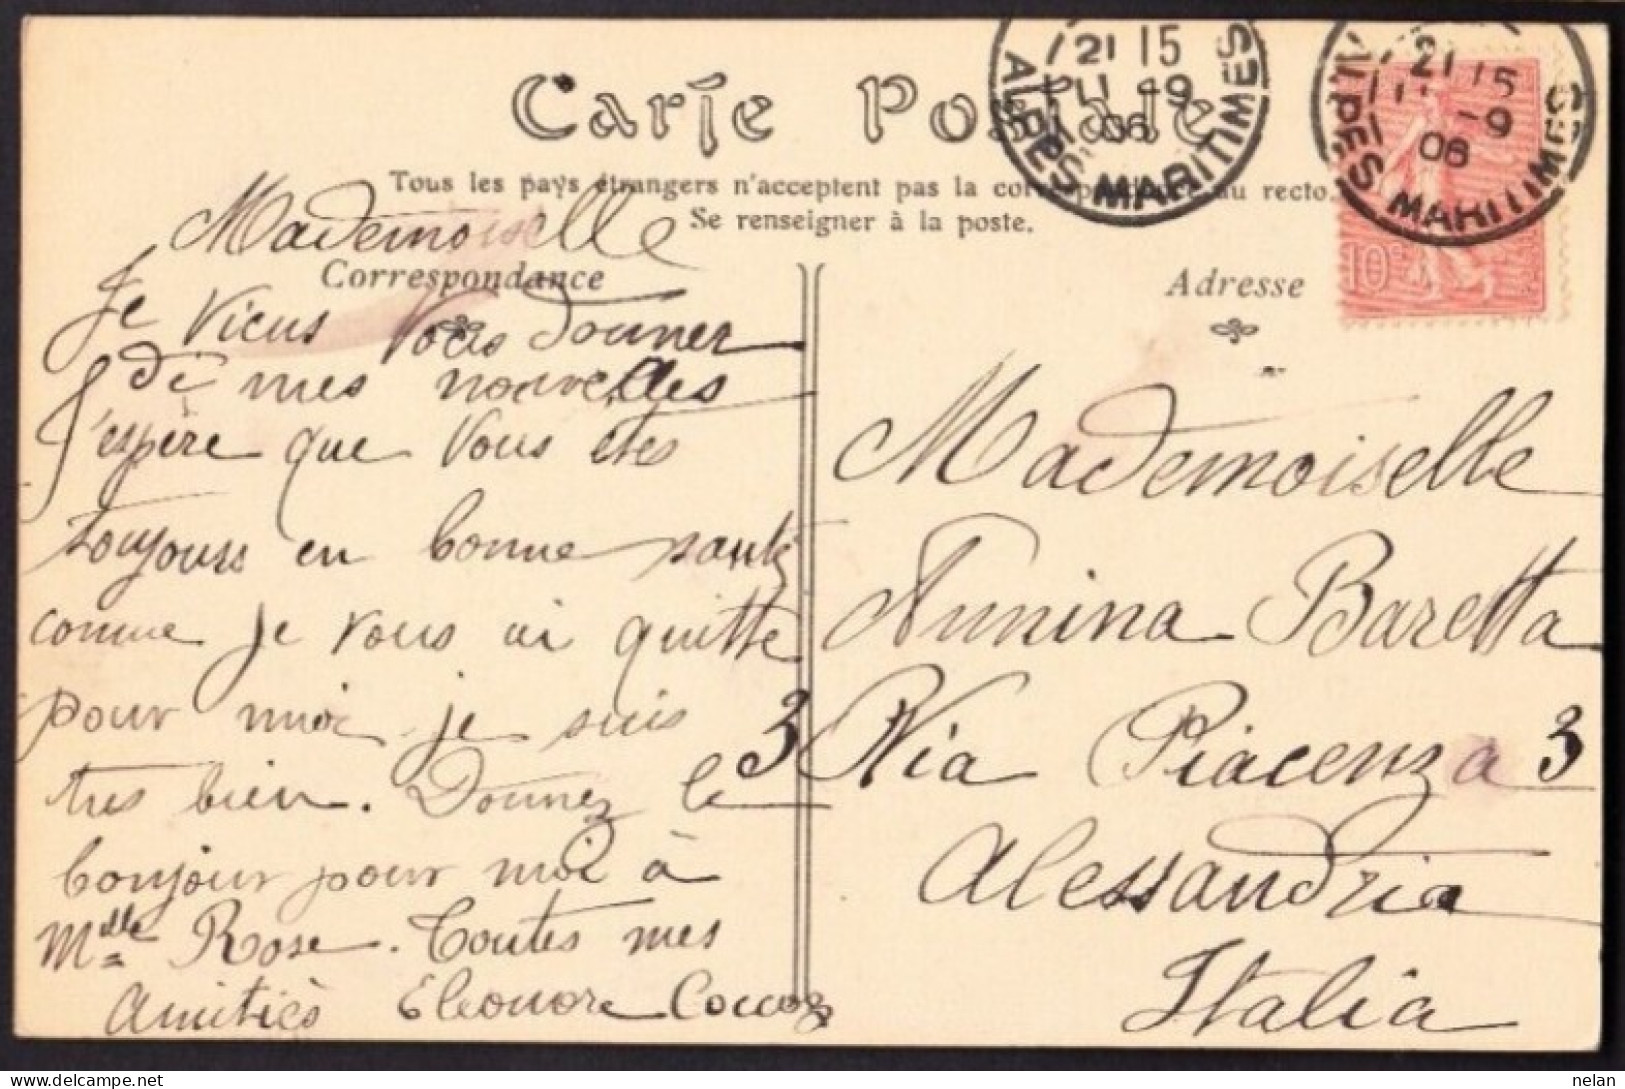 Carte Postale
Tous les pays étrangers n'acceptent pas la correspondance au recto.
Se renseigner à la poste.
Correspondance
Adresse
21 15
11 -9
06
ALPES MARITIMES
21 15
11 -9
06
ALPES MARITIMES
10c
Mademoiselle
Je viens vous donner
de mes nouvelles
J'espère que vous êtes
toujours en bonne santé
comme je vous ai quitté
pour moi je suis
tres bien. Donnez le
bonjour pour moi à
Mlle Rose. Toutes mes
amitiés Eleonore
Mademoiselle
Annina Baretta
3 Via Piacenza 3
Alessandria
Italia
nelan